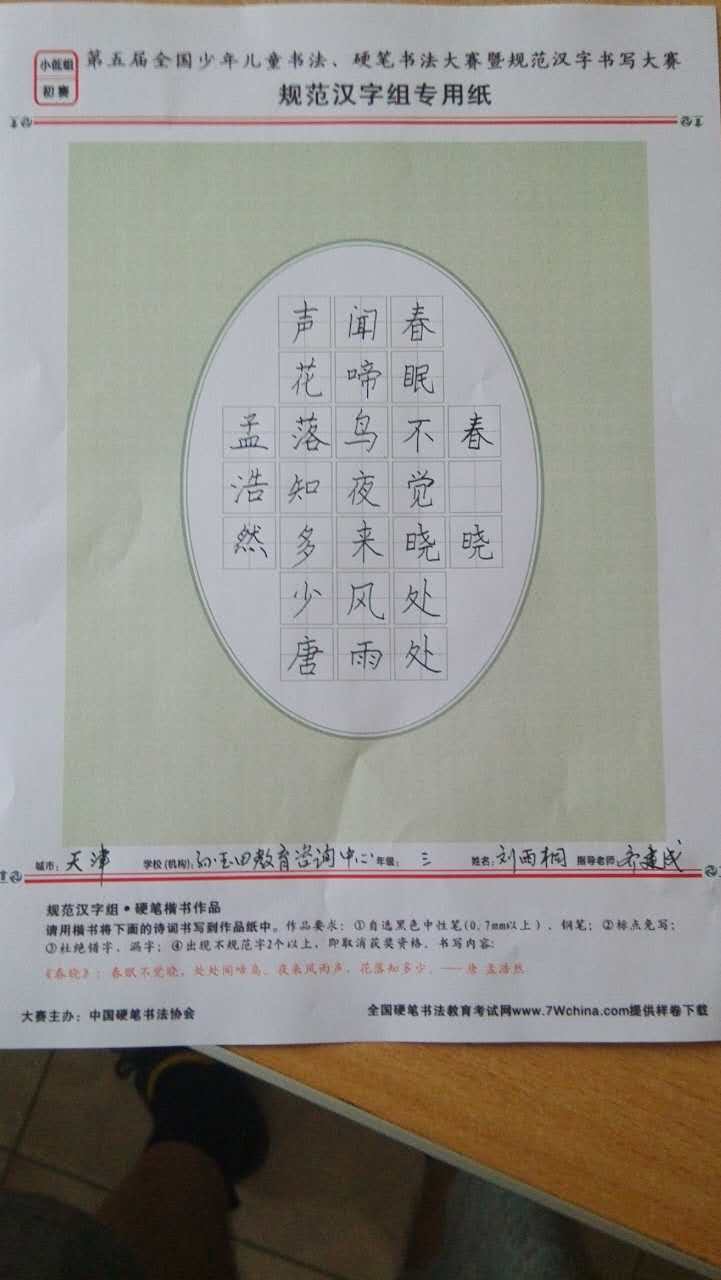 小低组
初赛
第五届全国少年儿童书法、硬笔书法大赛暨规范汉字书写大赛
规范汉字组专用纸
春晓
春眠不觉晓处处
闻啼鸟夜来风雨
声花落知多少唐
孟浩然
城市：天津 学校(机构)：孙玉田教育咨询中心 年级：三 姓名：刘雨桐 指导老师：齐建成
规范汉字组•硬笔楷书作品
请用楷书将下面的诗词书写到作品纸中。作品要求：①自选黑色中性笔(0.7mm以上)、钢笔；②标点免写；
③杜绝错字、漏字；④出现不规范字2个以上，即取消获奖资格。书写内容：
《春晓》：春眠不觉晓，处处闻啼鸟。夜来风雨声，花落知多少。——唐 孟浩然
大赛主办：中国硬笔书法协会
全国硬笔书法教育考试网www.7Wchina.com提供样卷下载